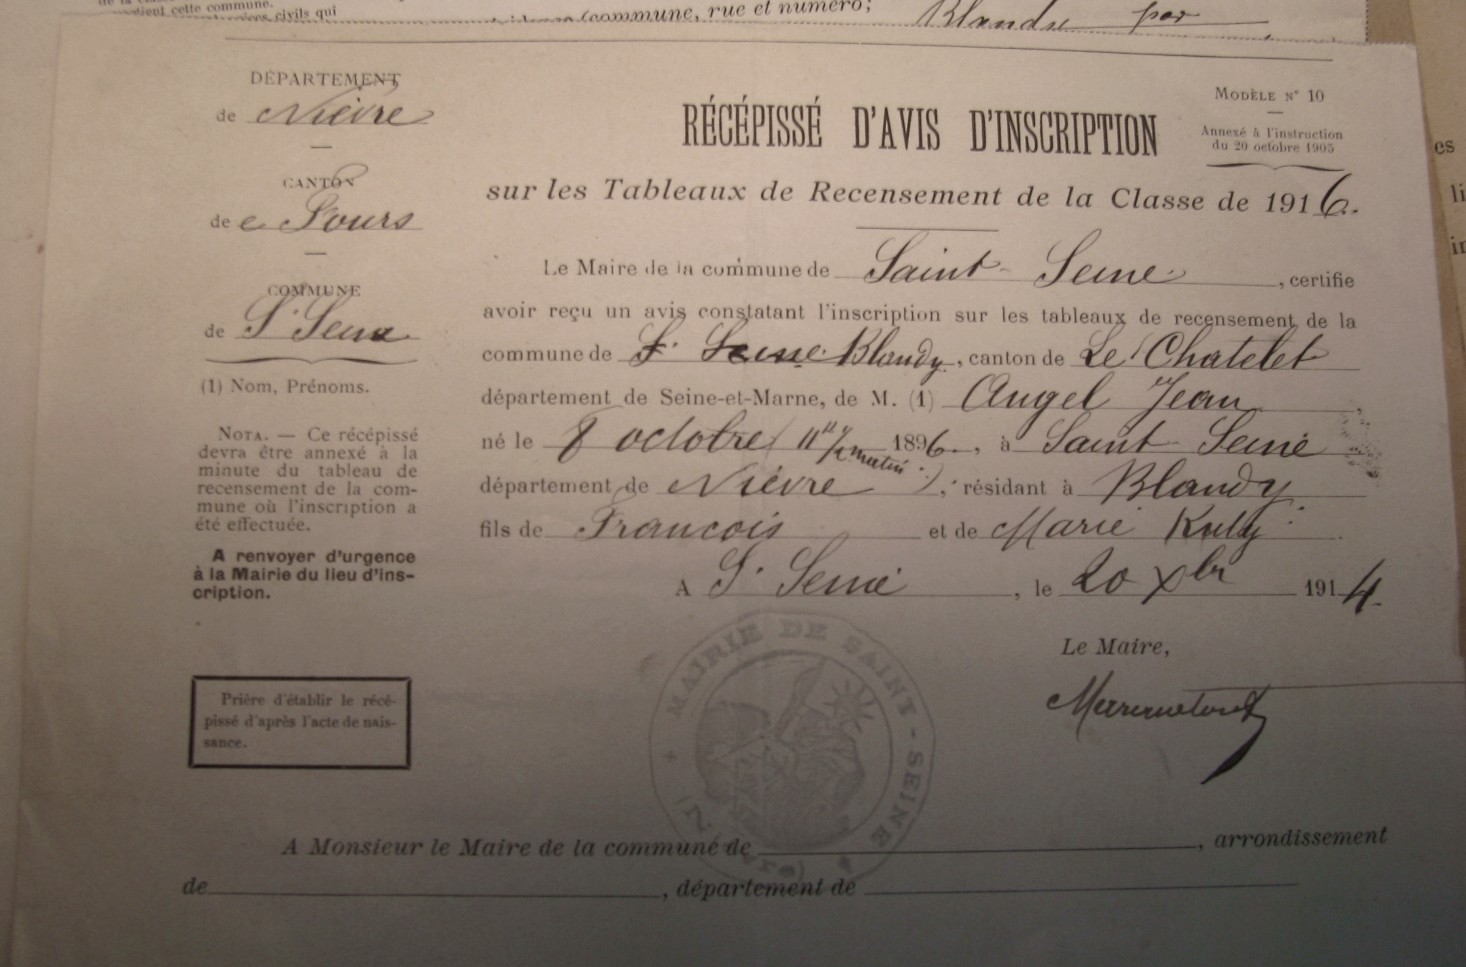 dient cette commune.
civils qui
(commune, rue et numéro; Blandy par
DÉPARTEMENT
de Nièvre
CANTON
de Fours
COMMUNE
de St Seine
(1) Nom, Prénoms.
NOTA. — Ce récépissé
devra être annexé à la
minute du tableau de
recensement de la com-
mune où l'inscription a
été effectuée.
A renvoyer d'urgence
à la Mairie du lieu d'ins-
cription.
Prière d'établir le récé-
pissé d'après l'acte de nais-
sance.
MODÈLE N° 10
Annexé à l'instruction
du 20 octobre 1905
RÉCÉPISSÉ D'AVIS D'INSCRIPTION
sur les Tableaux de Recensement de la Classe de 1916.
Le Maire de la commune de Saint-Seine, certifie
avoir reçu un avis constatant l'inscription sur les tableaux de recensement de la
commune de St Seine Blandy, canton de Le Chatelet
département de Seine-et-Marne, de M. (1) Angel Jean,
né le 8 octobre 1896, à Saint-Seine
matin
département de Nièvre, résidant à Blandy
fils de Francois et de Marie
A St Seine, le 20 Xbr 1914
Le Maire,
MAIRIE DE SAINT-SEINE
(Nièvre)
A Monsieur le Maire de la commune de , arrondissement
de , département de